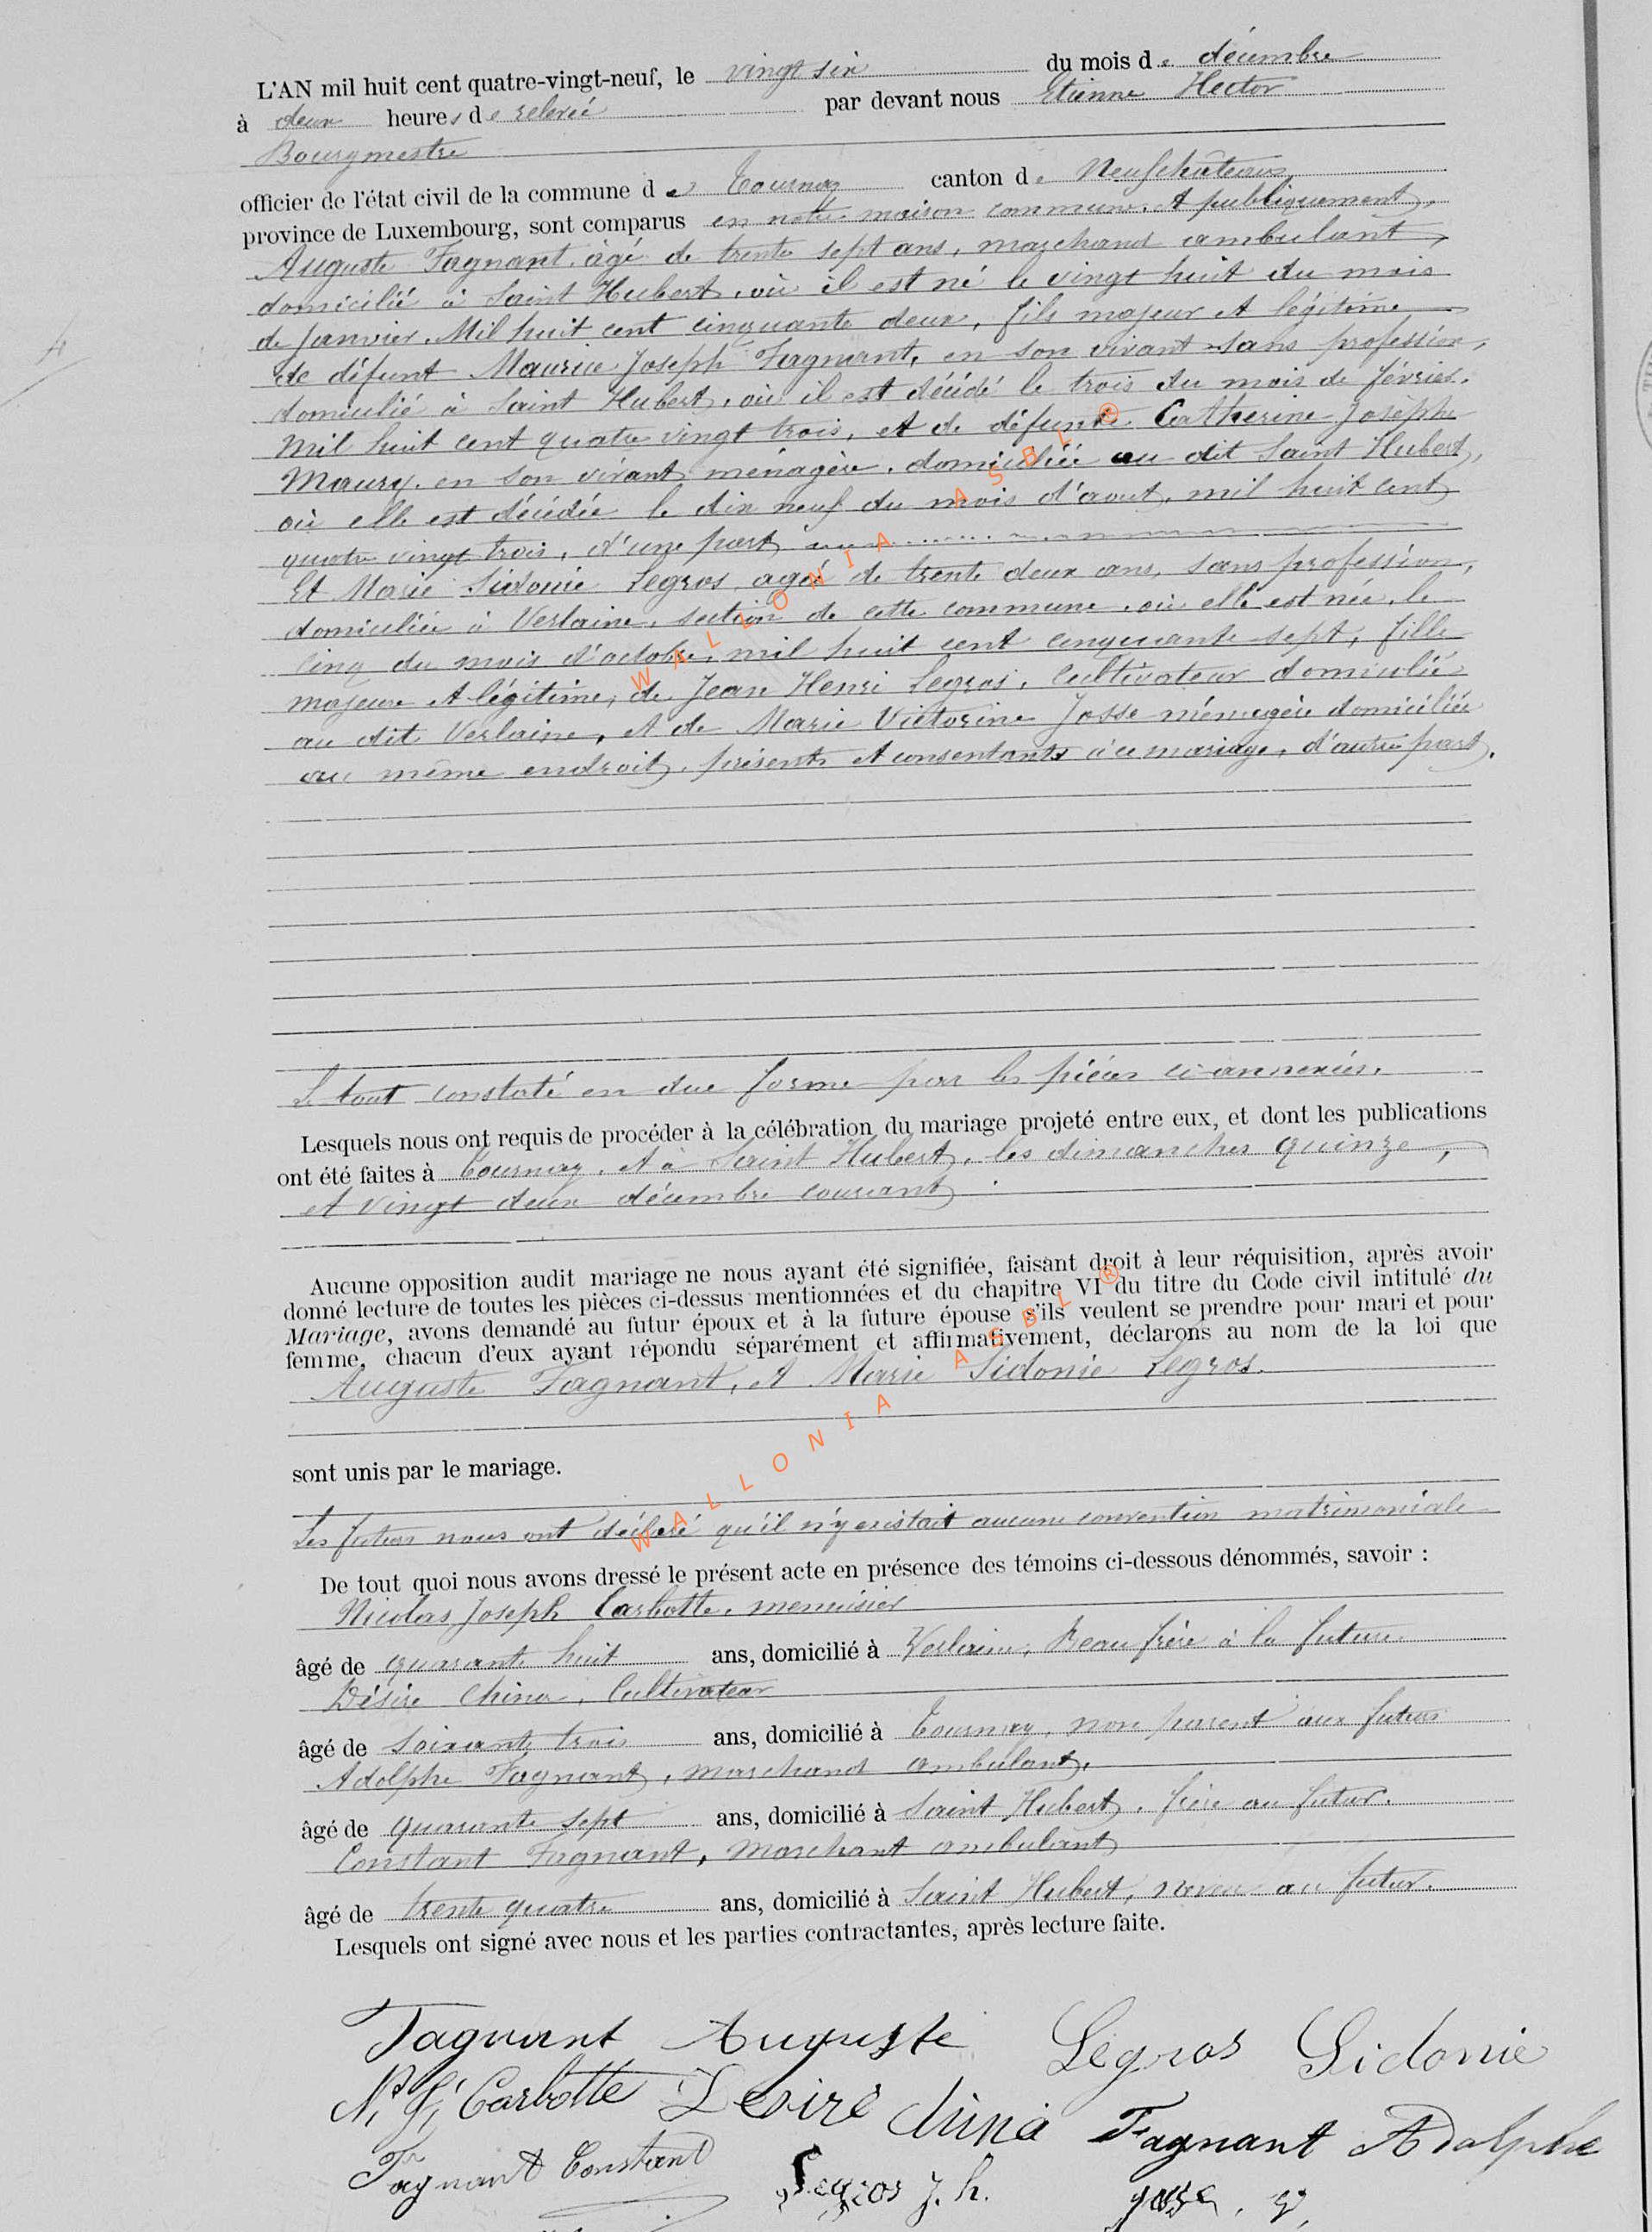 4
L'AN mil huit cent quatre-vingt-neuf, le vingt six du mois de décembre
à deux heures de relevée par devant nous Etienne Hector
Bourgmestre
officier de l'état civil de la commune de Tournay canton de Neufchâteau
province de Luxembourg, sont comparus en notre maison commune et publiquement,
Auguste Fagnant, âgé de trente sept ans, marchand ambulant,
domicilié à Saint Hubert, où il est né le vingt huit du mois
de Janvier Mil huit cent cinquante deux, fils majeur et légitime
de défunt Maurice Joseph Fagnant, en son vivant sans profession,
domicilié à Saint Hubert, où il est décédé le trois du mois de février
mil huit cent quatre vingt trois, et de défunte Catherine Josèphe
Maury en son vivant ménagère, domiciliée au dit Saint Hubert,
où elle est décédée le dix neuf du mois d'aout, mil huit cent
quatre vingt trois, d'une part
Et Marie Sidonie Legros agée de trente deux ans, sans profession,
domiciliée à Verlaine, section de cette commune, où elle est née, le
cinq du mois d'octobre, mil huit cent cinquante sept, fille
majeure et légitime, de Jean Henri Legros, Cultivateur domicilié
au dit Verlaine, et de Marie Victorine Josse ménagère domiciliée
au même endroit, présents et consentants à ce mariage, d'autre part.
Le tout constaté en due forme par les pièces ci-annexées.
Lesquels nous ont requis de procéder à la célébration du mariage projeté entre eux, et dont les publications
ont été faites à Tournay, et à Saint Hubert, les dimanches quinze,
et vingt deux décembre courant
Aucune opposition audit mariage ne nous ayant été signifiée, faisant droit à leur réquisition, après avoir
donné lecture de toutes les pièces ci-dessus mentionnées et du chapitre VI du titre du Code civil intitulé du
Mariage, avons demandé au futur époux et à la future épouse s'ils veulent se prendre pour mari et pour
femme, chacun d'eux ayant répondu séparément et affirmativement, déclarons au nom de la loi que
Auguste Fagnant, et Marie Sidonie Legros.
sont unis par le mariage.
Les futurs nous ont déclaré qu'il n'y existait aucune convention matrimoniale
De tout quoi nous avons dressé le présent acte en présence des témoins ci-dessous dénommés, savoir :
Nicolas Joseph Carbotte, menuisier
âgé de quarante huit ans, domicilié à Verlaine, Beau frère à la future
Désiré China, Cultivateur
âgé de soixante trois ans, domicilié à Tournay, non parent aux futurs
Adolphe Fagnant, marchand ambulant,
âgé de quarante sept ans, domicilié à Saint Hubert, frère au futur.
Constant Fagnant, marchant ambulant
âgé de trente quatre ans, domicilié à Saint Hubert, neveu au futur.
Lesquels ont signé avec nous et les parties contractantes, après lecture faite.
Fagnant Auguste Legros Sidonie
N. J. Carbotte Desiré China Fagnant Adolphe
Fagnant Constant Legros J. h.
WALLONIA ASBL ®
WALLONIA ASBL ®